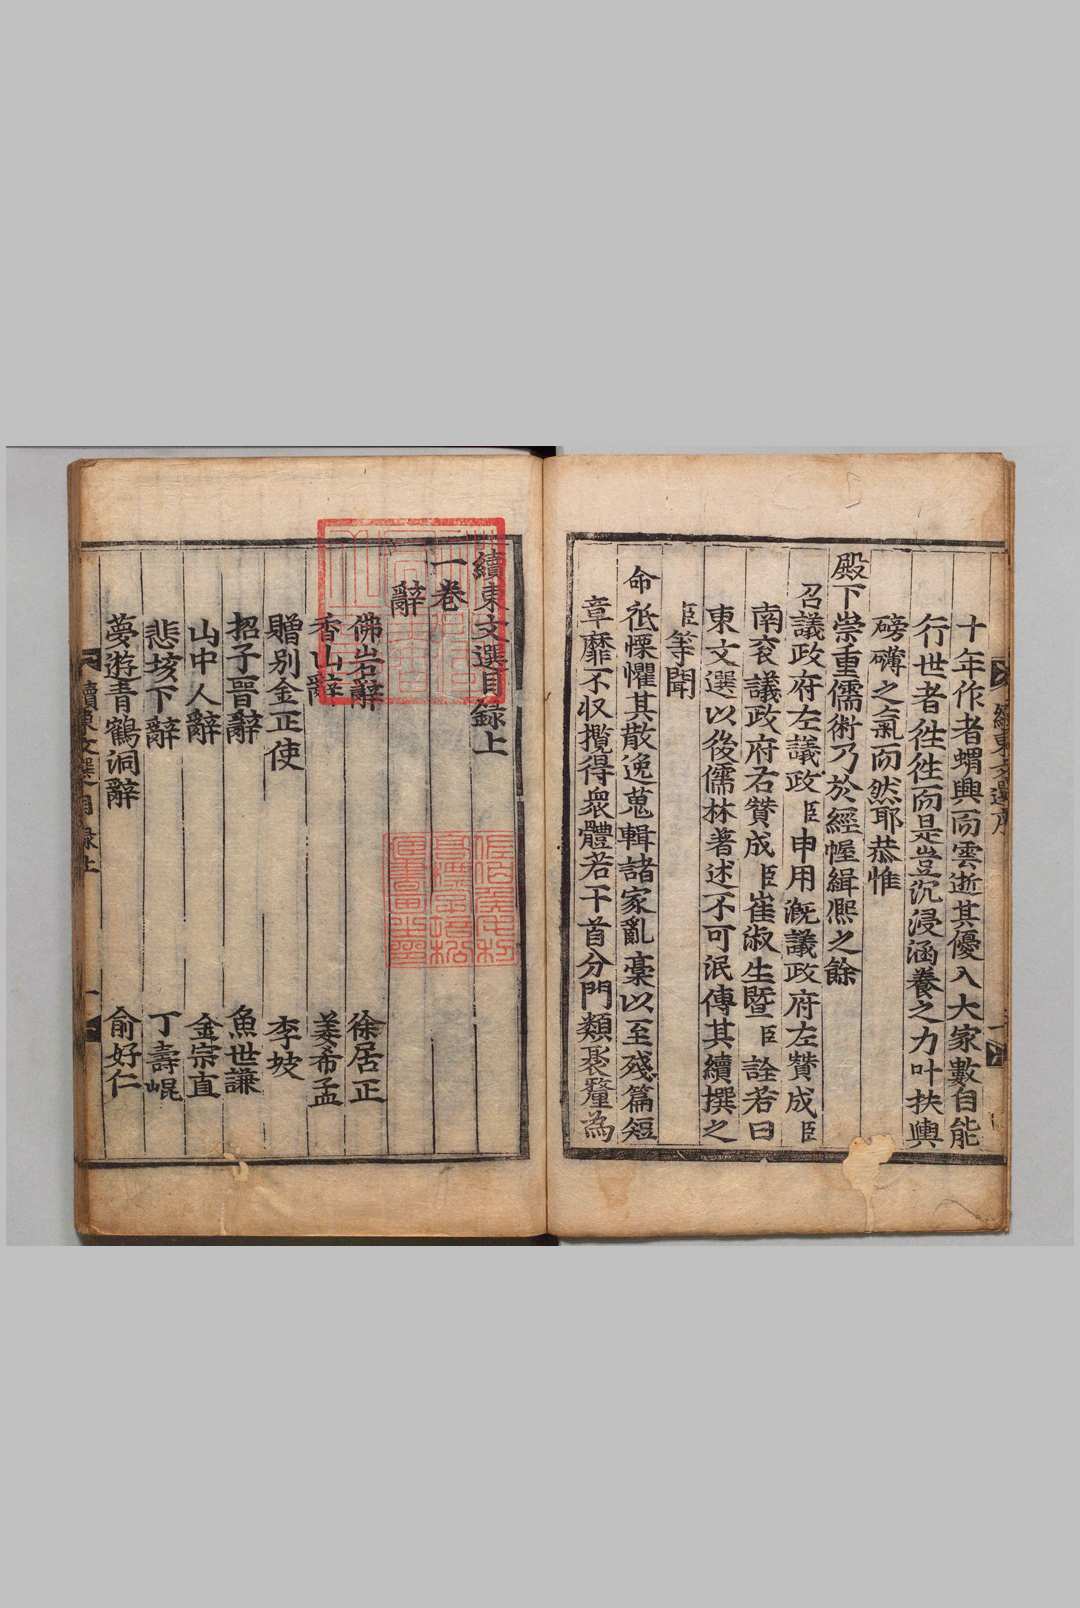 十年作者蝟興而雲逝其優入大家數自能
行世者徃徃而是豈沉浸涵養之力叶扶輿
磅礴之氣而然耶恭惟
殿下崇重儒術乃於經幄緝熙之餘
召議政府左議政臣申用漑議政府左贊成臣
南袞議政府右贊成臣崔淑生曁臣詮若曰
東文選以後儒林著述不可泯傳其續撰之
臣等聞
命祗慄懼其散逸蒐輯諸家亂藁以至殘篇短
章靡不収攬得衆體若干首分門類聚釐為
續東文選目錄上
一卷
辭
佛岩辭 徐居正
香山辭 姜希孟
贈别金正使 李坡
招子晋辭 魚世謙
山中人辭 金宗直
悲垓下辭 丁壽崐
夢遊青鶴洞辭 俞好仁
續東文選目録上 一